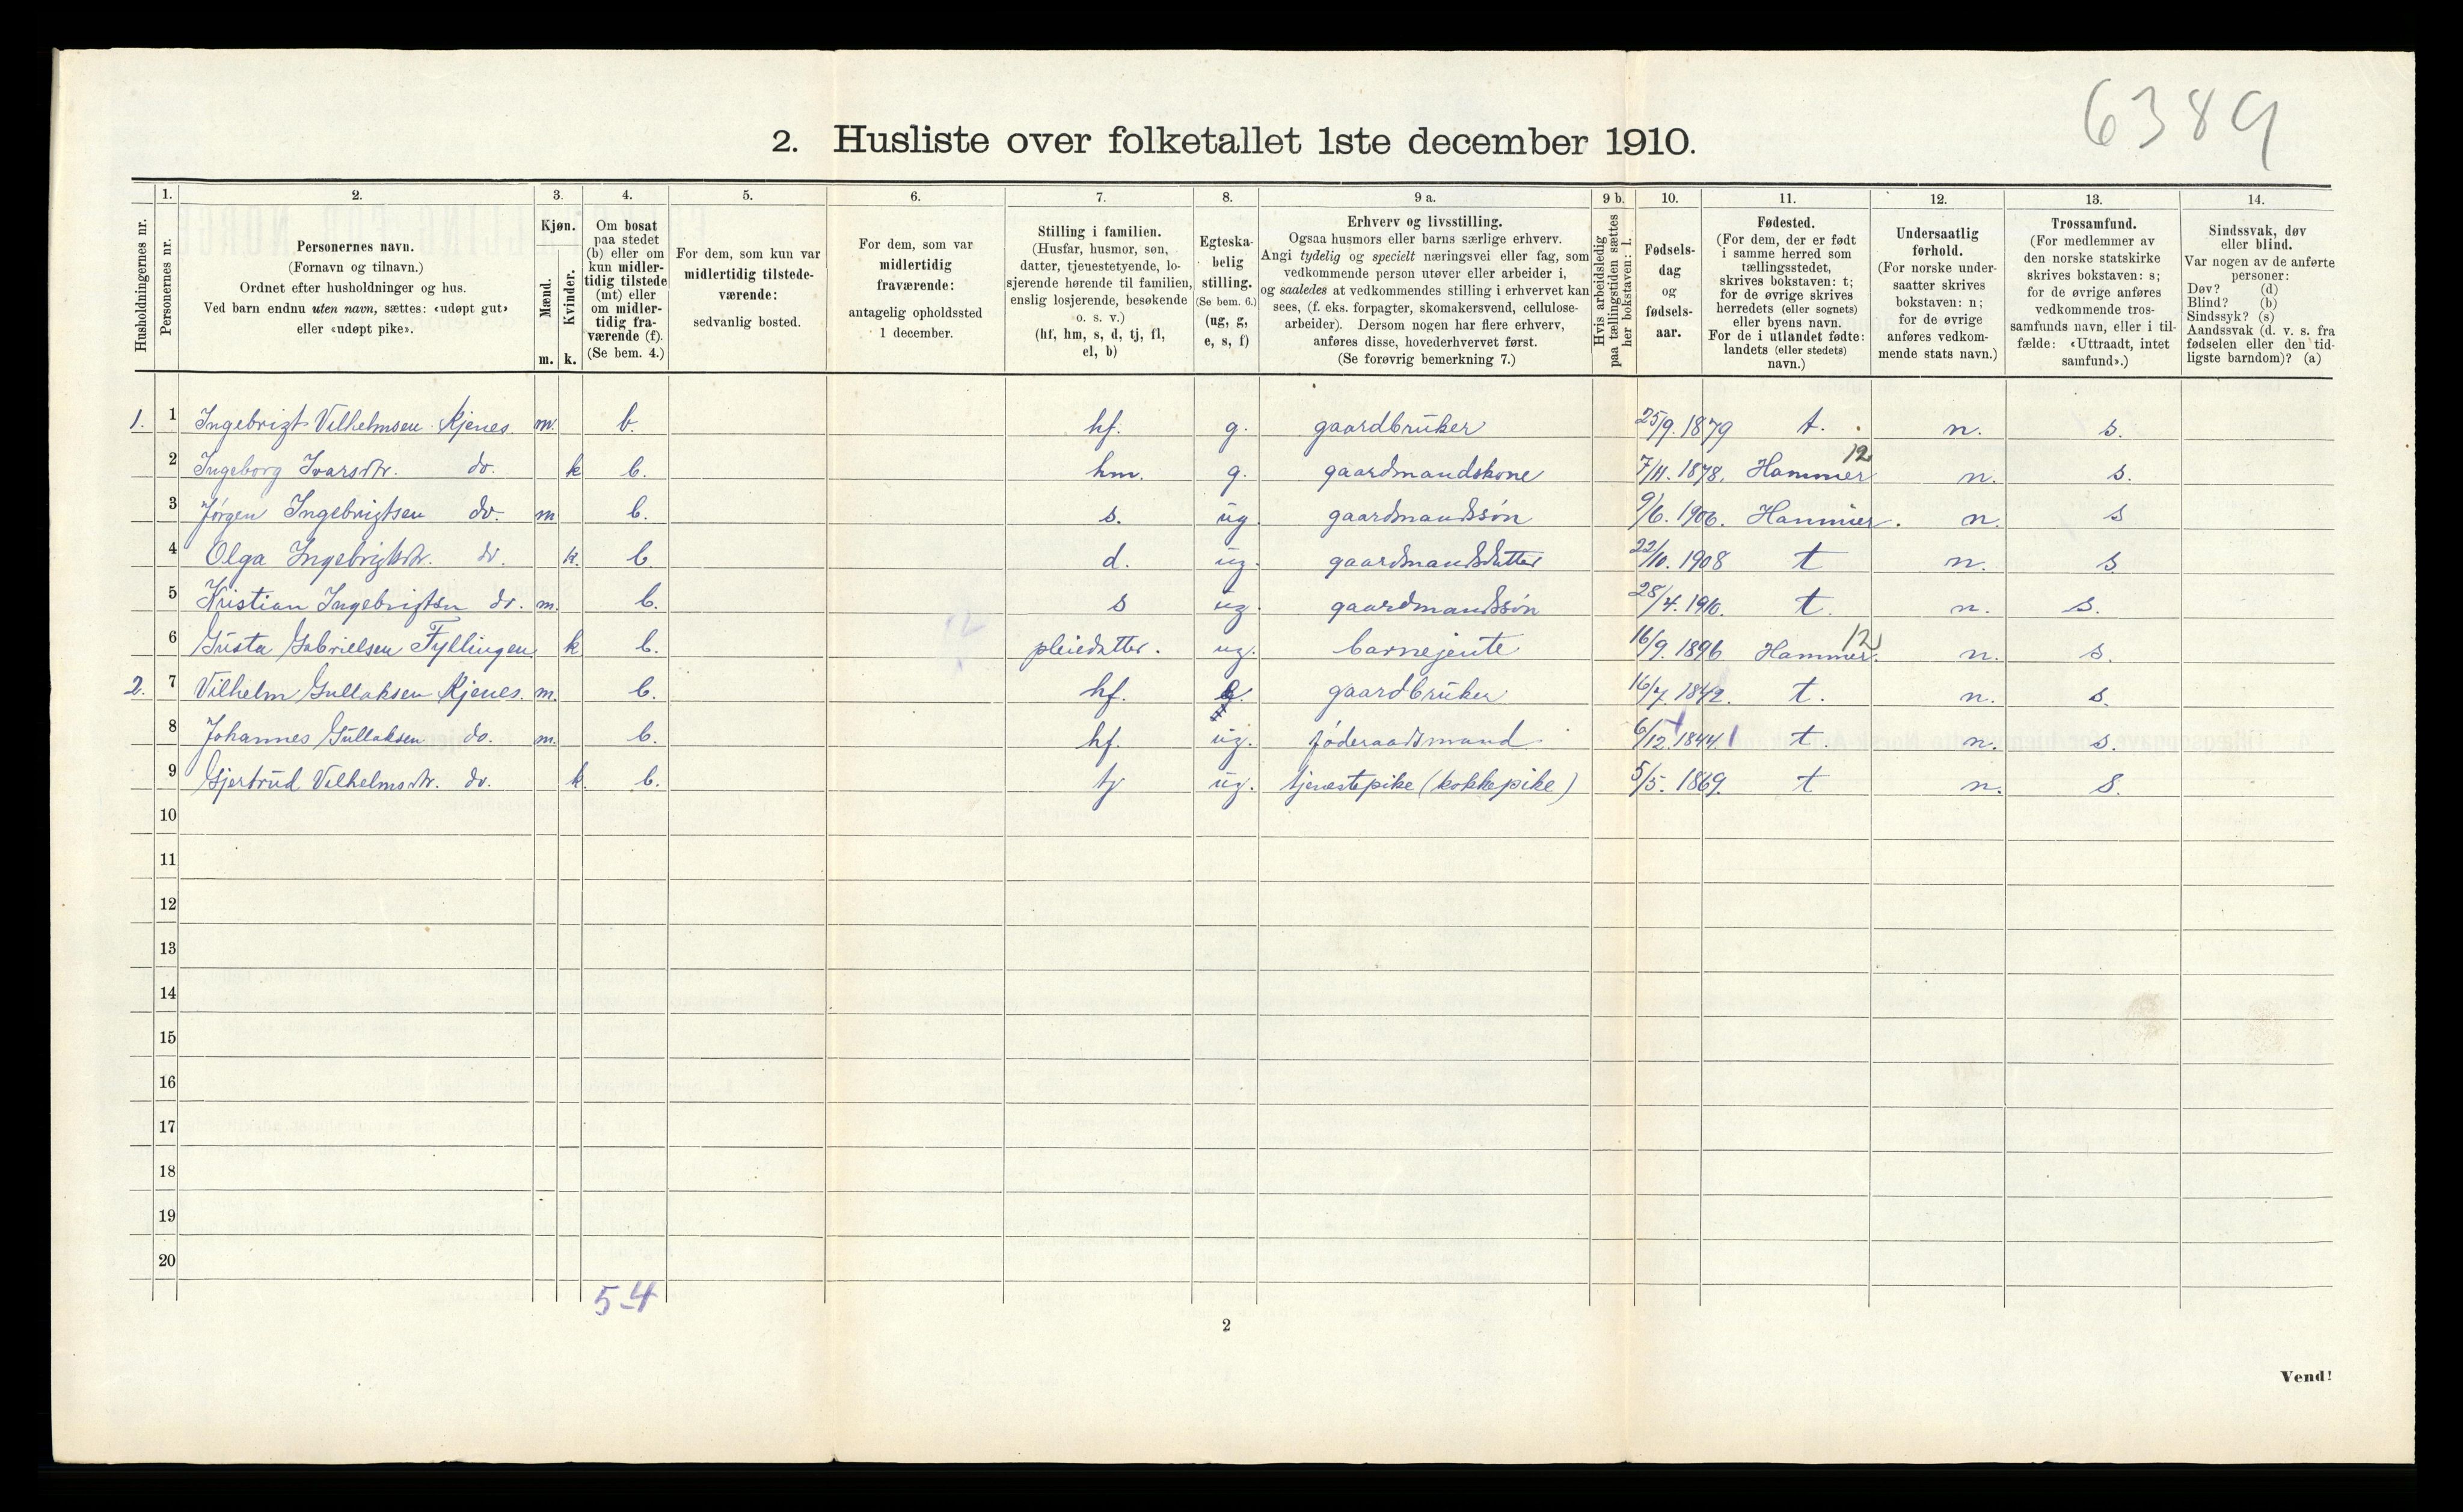 6389
2. Husliste over folketallet 1ste december 1910.
Husholdningernes nr.
1.
Personernes nr.
2.
Personernes navn.
(Fornavn og tilnavn.)
Ordnet efter husholdninger og hus.
Ved barn endnu uten navn, sættes: «udøpt gut»
eller «udøpt pike».
3.
Kjøn.
Mænd.
Kvinder.
m. k.
4.
Om bosat
paa stedet
(b) eller om
kun midler-
tidig tilstede
(mt) eller
om midler-
tidig fra-
værende (f).
(Se bem. 4.)
5.
For dem, som kun var
midlertidig tilstede-
værende:
sedvanlig bosted.
6.
For dem, som var
midlertidig
fraværende:
antagelig opholdssted
1 december.
7.
Stilling i familien.
(Husfar, husmor, søn,
datter, tjenestetyende, lo-
sjerende hørende til familien,
enslig losjerende, besøkende
o. s. v.)
(hf, hm, s, d, tj, fl,
el, b)
8.
Egteska-
belig
stilling.
(Se bem. 6.)
(ug, g,
e, s, f)
9 a.
Erhverv og livsstilling.
Ogsaa husmors eller barns særlige erhverv.
Angi tydelig og specielt næringsvei eller fag, som
vedkommende person utøver eller arbeider i,
og saaledes at vedkommendes stilling i erhvervet kan
sees, (f. eks. forpagter, skomakersvend, cellulose-
arbeider). Dersom nogen har flere erhverv,
anføres disse, hovederhvervet først.
(Se forøvrig bemerkning 7.)
9 b.
Hvis arbeidsledig
paa tællingstiden sættes
her bokstaven: l.
10.
Fødsels-
dag
og
fødsels-
aar.
11.
Fødested.
(For dem, der er født
i samme herred som
tællingsstedet,
skrives bokstaven: t;
for de øvrige skrives
herredets (eller sognets)
eller byens navn.
For de i utlandet fødte:
landets (eller stedets)
navn.)
12.
Undersaatlig
forhold.
(For norske under-
saatter skrives
bokstaven: n;
for de øvrige
anføres vedkom-
mende stats navn.)
13.
Trossamfund.
(For medlemmer av
den norske statskirke
skrives bokstaven: s;
for de øvrige anføres
vedkommende tros-
samfunds navn, eller i til-
fælde: «Uttraadt, intet
samfund».)
14.
Sindssvak, døv
eller blind.
Var nogen av de anførte
personer:
Døv? (d)
Blind? (b)
Sindssyk? (s)
Aandssvak (d. v. s. fra
fødselen eller den tid-
ligste barndom)? (a)
1. 1 Ingebrigt Vilhelmsen Kjenes. m. b. hf. g. gaardbruker 25/9. 1879 t. n. s.
12
2 Ingeborg Ivarsdtr. do. k b. hm. g. gaardmandskone 7/11. 1878. Hammer n. s.
3 Jørgen Ingebrigtsen do. m b. s. ug gaardmandssøn 9/6. 1906. Hammer. n. s
4 Olga Ingebrigtsdtr. do. k. b d. ug. gaardmandsdatter 22/10. 1908 t n. s
5 Kristian Ingebrigtsen do. m. b. s ug. gaardmandssøn 28/4. 1910. t. n. s.
12
6 Gusta Gabrielsen Fyllingen k b. pleiedatter. ug. barnejente 16/9. 1896 Hammer. n. s.
2. 7 Vilhelm Gullaksen Kjenes. m. b. hf. gaardbruker 16/7. 1842. t. n. s.
8 Johannes Gullaksen do. m. b. hf. ug. føderaadsmand 6/12. 1844. t. n. s.
9 Gjertrud Vilhelmsdtr. do. k. b. tj ug. tjenestepike (kokkepike) 5/5. 1869. t n. s.
10
11
12
13
14
15
16
17
18
19
20
5-4
2
Vend!